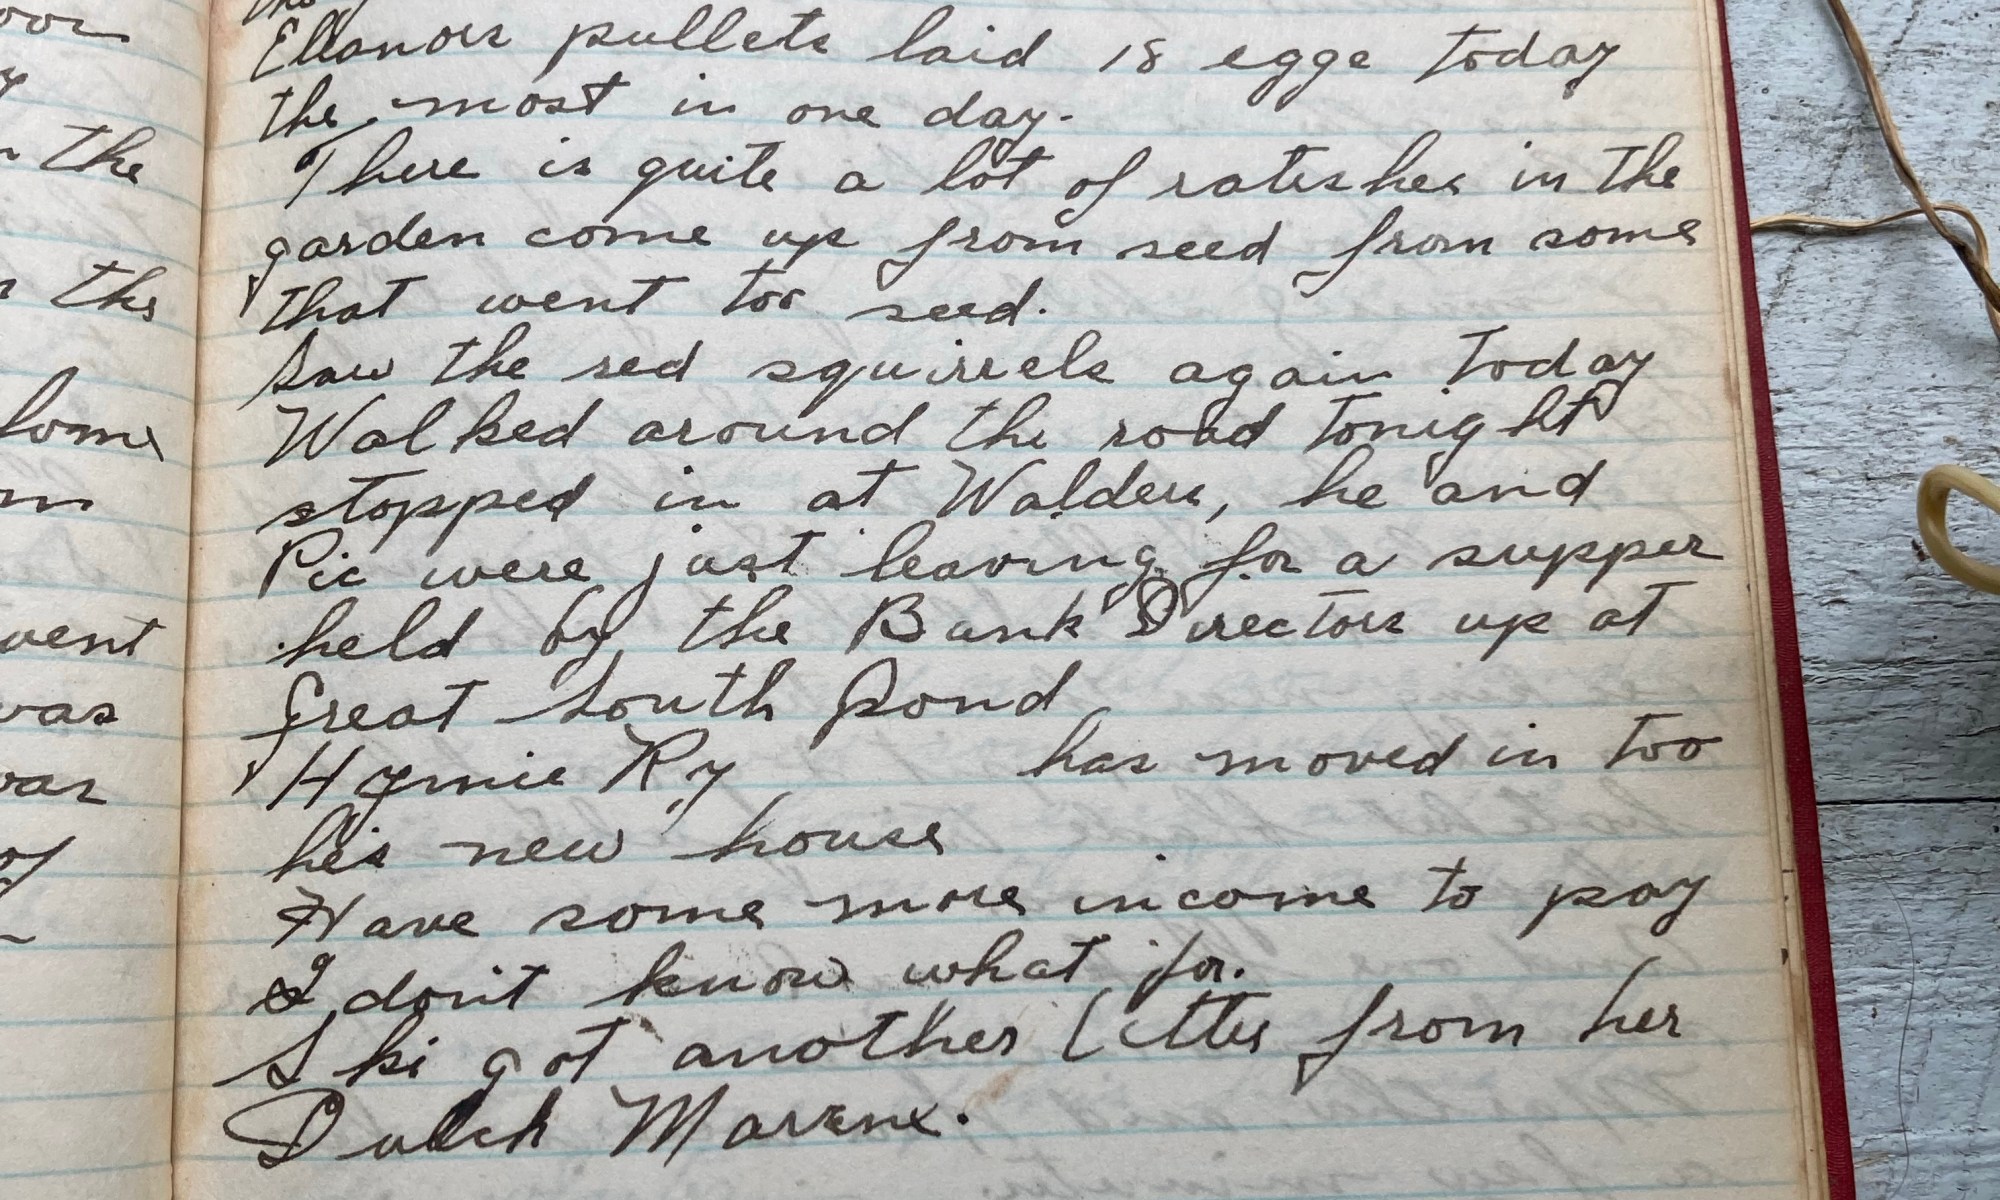 oor
the
the
home
m
went
was
of
Eleanors pullets laid 18 eggs today
the most in one day.
There is quite a lot of ratishes in the
garden come up from seed from some
that went too seed.
Saw the red squirrels again today
Walked around the road tonight
stopped in at Walders, he and
Pic were just leaving for a supper
held by the Bank Directors up at
Great South Pond
Hymie Ry has moved in too
his new house
Have some more income to pay
I don't know what for.
Ski got another letter from her
Dutch Marine.